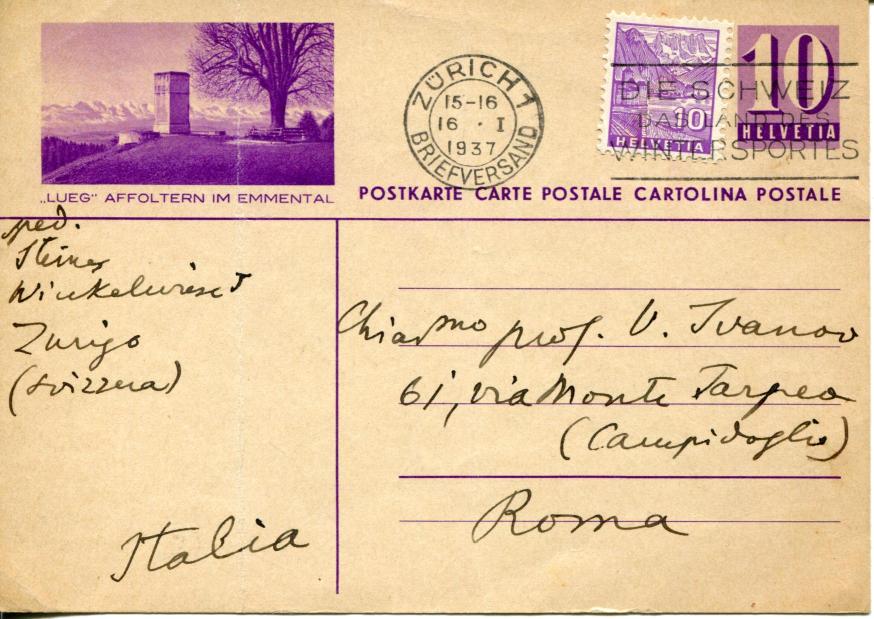 ZÜRICH 1
15-16
16 · I
1937
BRIEFVERSAND
10
HELVETIA
10
HELVETIA
DIE SCHWEIZ
DAS LAND DES
WINTERSPORTES
„LUEG" AFFOLTERN IM EMMENTAL
POSTKARTE CARTE POSTALE CARTOLINA POSTALE
sped.
Steiner
Winkelwiese 5
Zurigo
(Svizzera)
Italia
Chiarmo prof. V. Ivanov
61, via Monte Tarpeo
(Campidoglio)
Roma